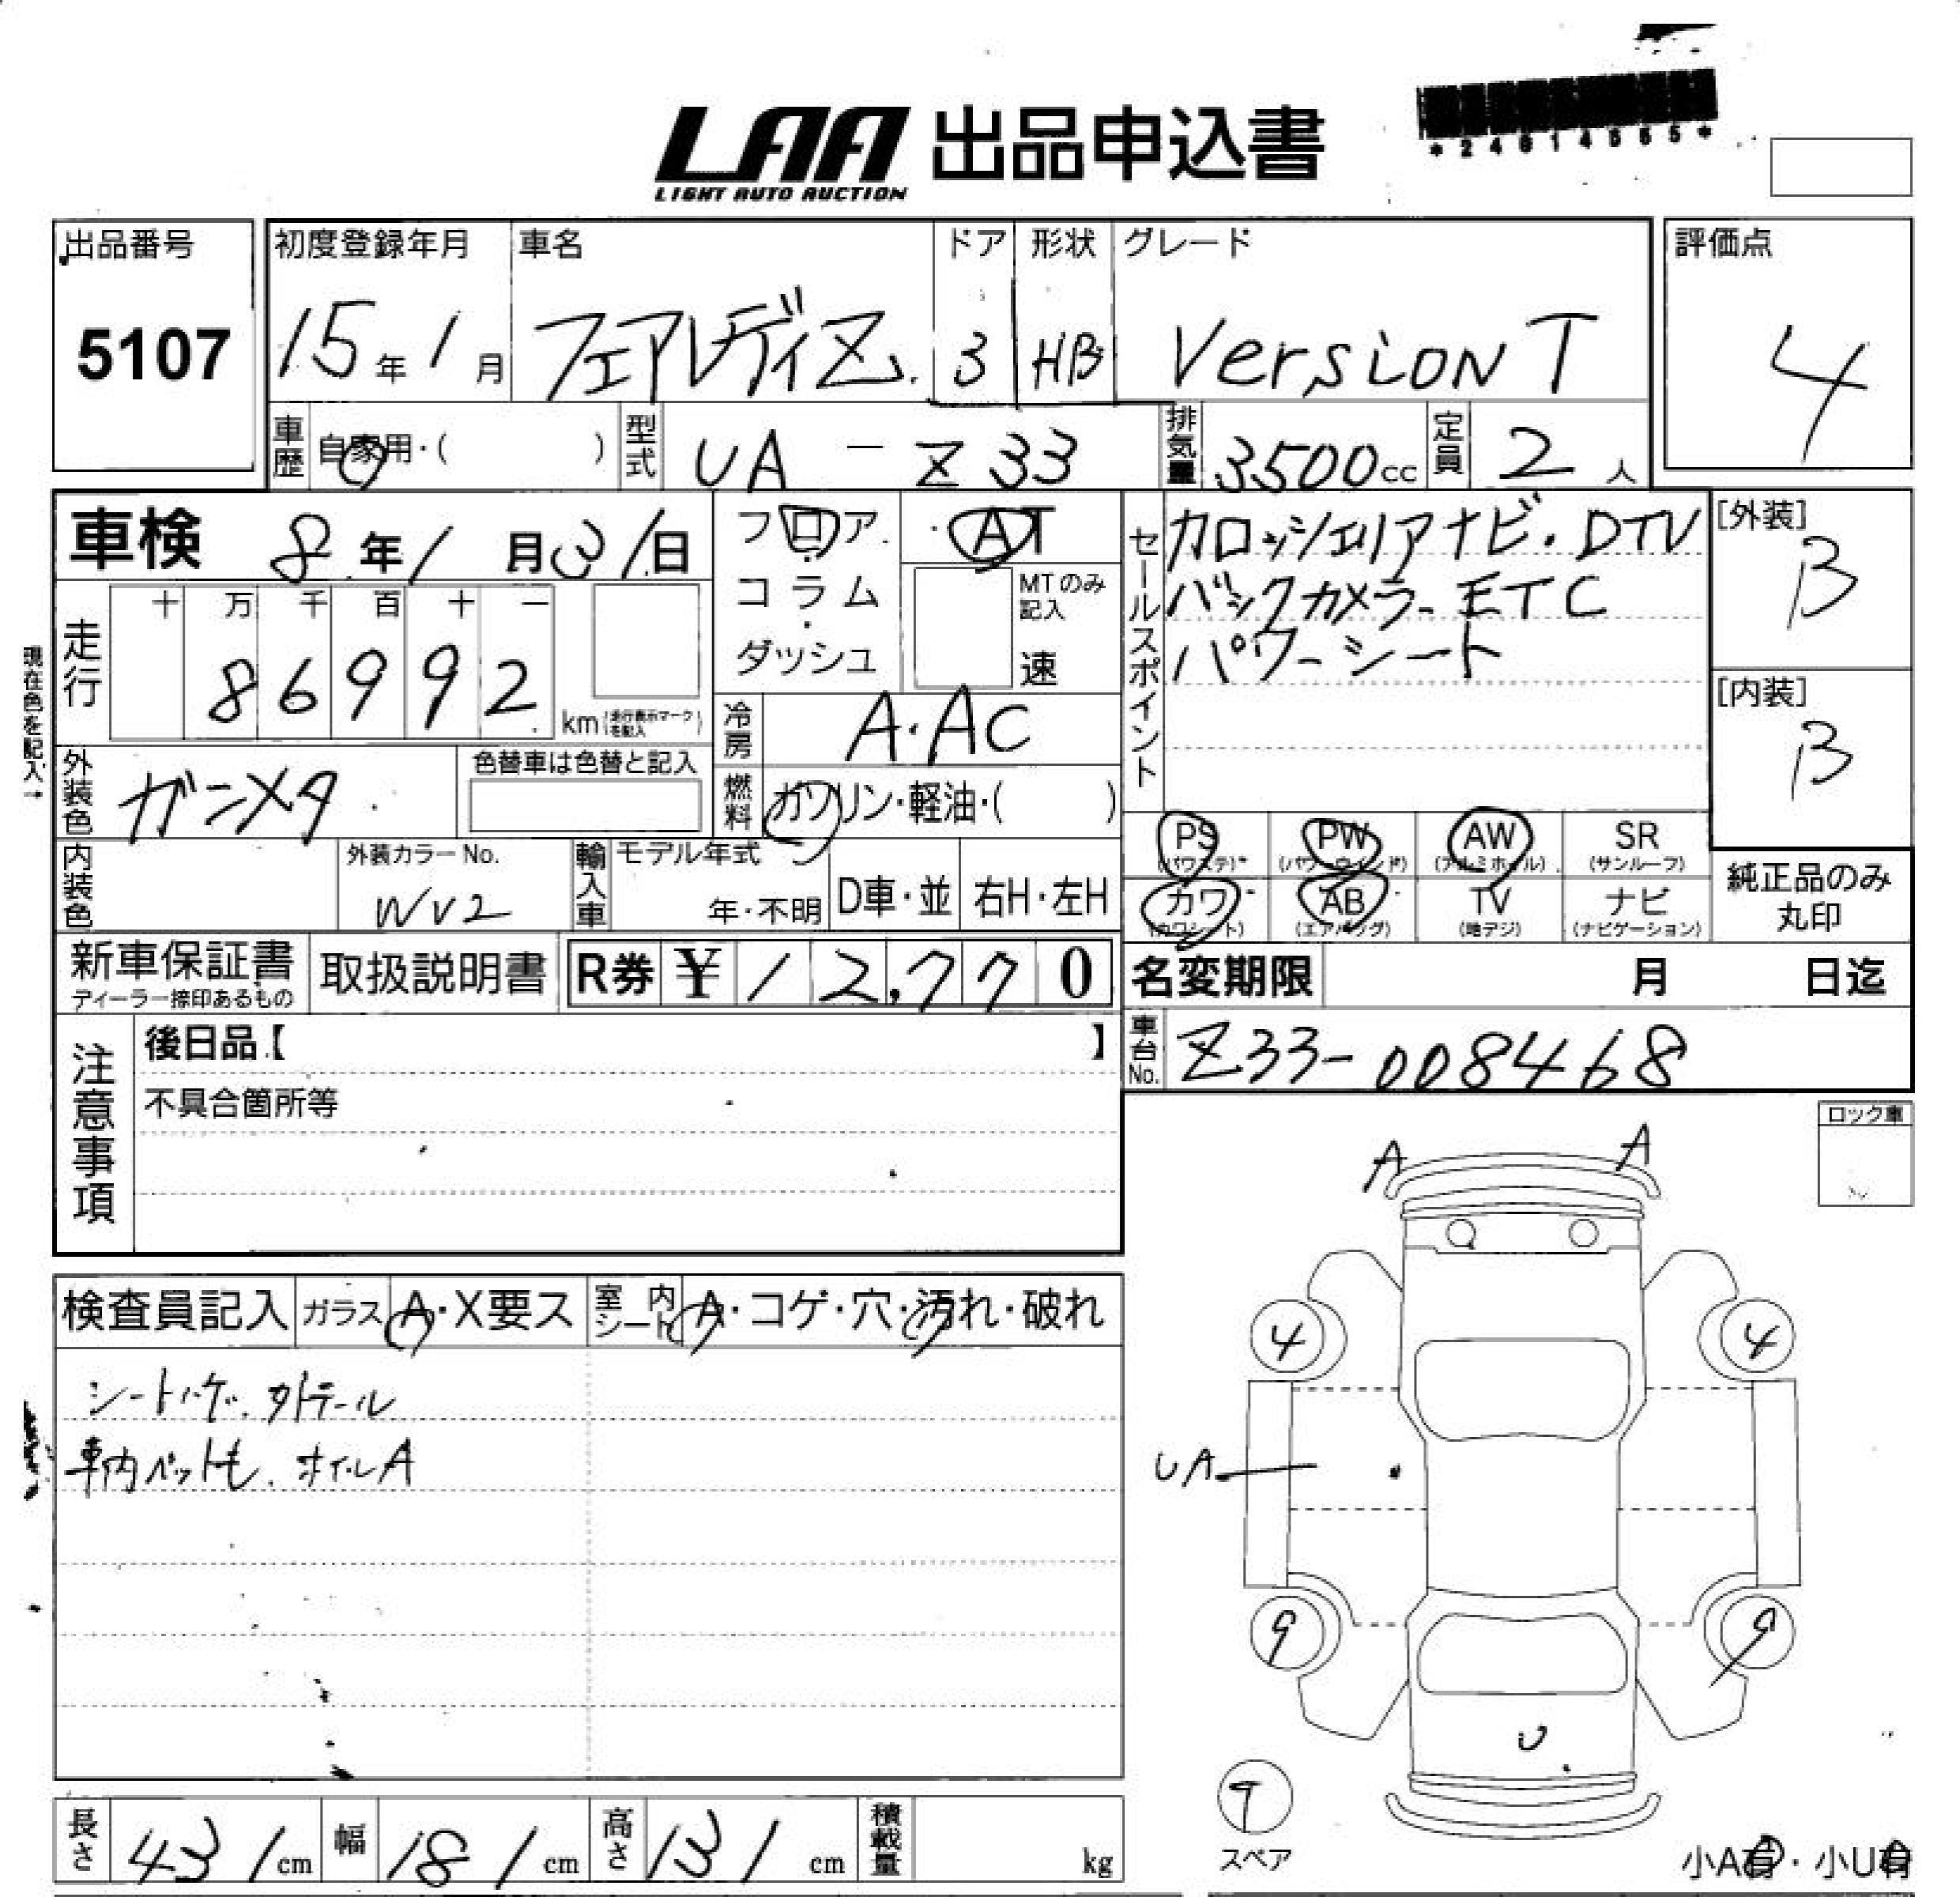 LAA 出品申込書
LIGHT AUTO AUCTION
出品番号
5107
初度登録年月
15年1月
車名
フェアレディZ
ドア
3
形状
HB
グレード
Version T
評価点
4
車歴 自家用・( )
型式 UA-Z33
排気量 3500cc
定員 2人
車検 8年1月31日
フロア・コラム・ダッシュ
AT
MTのみ記入
速
セールスポイント
カロッツェリアナビ・DTV
バックカメラ ETC
パワーシート
[外装]
B
[内装]
B
現在色を記入→
走行
十 万 千 百 十 一
86992
km(走行表示マークを記入)
冷房 A・AC
外装色 ガンメタ
色替車は色替と記入
燃料 ガソリン・軽油・( )
内装色
外装カラーNo.
WV2
輸入車
モデル年式
年・不明
D車・並
右H・左H
PS (パワステ)
PW (パワーウインド)
AW (アルミホイル)
SR (サンルーフ)
カワ (カワシート)
AB (エアバッグ)
TV (地デジ)
ナビ (ナビゲーション)
純正品のみ丸印
新車保証書
ディーラー捺印あるもの
取扱説明書
R券 ¥12,770
名変期限 月 日迄
車台No. Z33-008468
注意事項
後日品【 】
不具合箇所等
ロック車
A A
検査員記入
ガラス A・X要ス
室内シート A・コゲ・穴・汚れ・破れ
シートハゲ、
車内ペット毛、ホイルA
4 4
UA
9 9
U
T
スペア
長さ 431cm
幅 181cm
高さ 131cm
積載量 kg
小A有・小U有